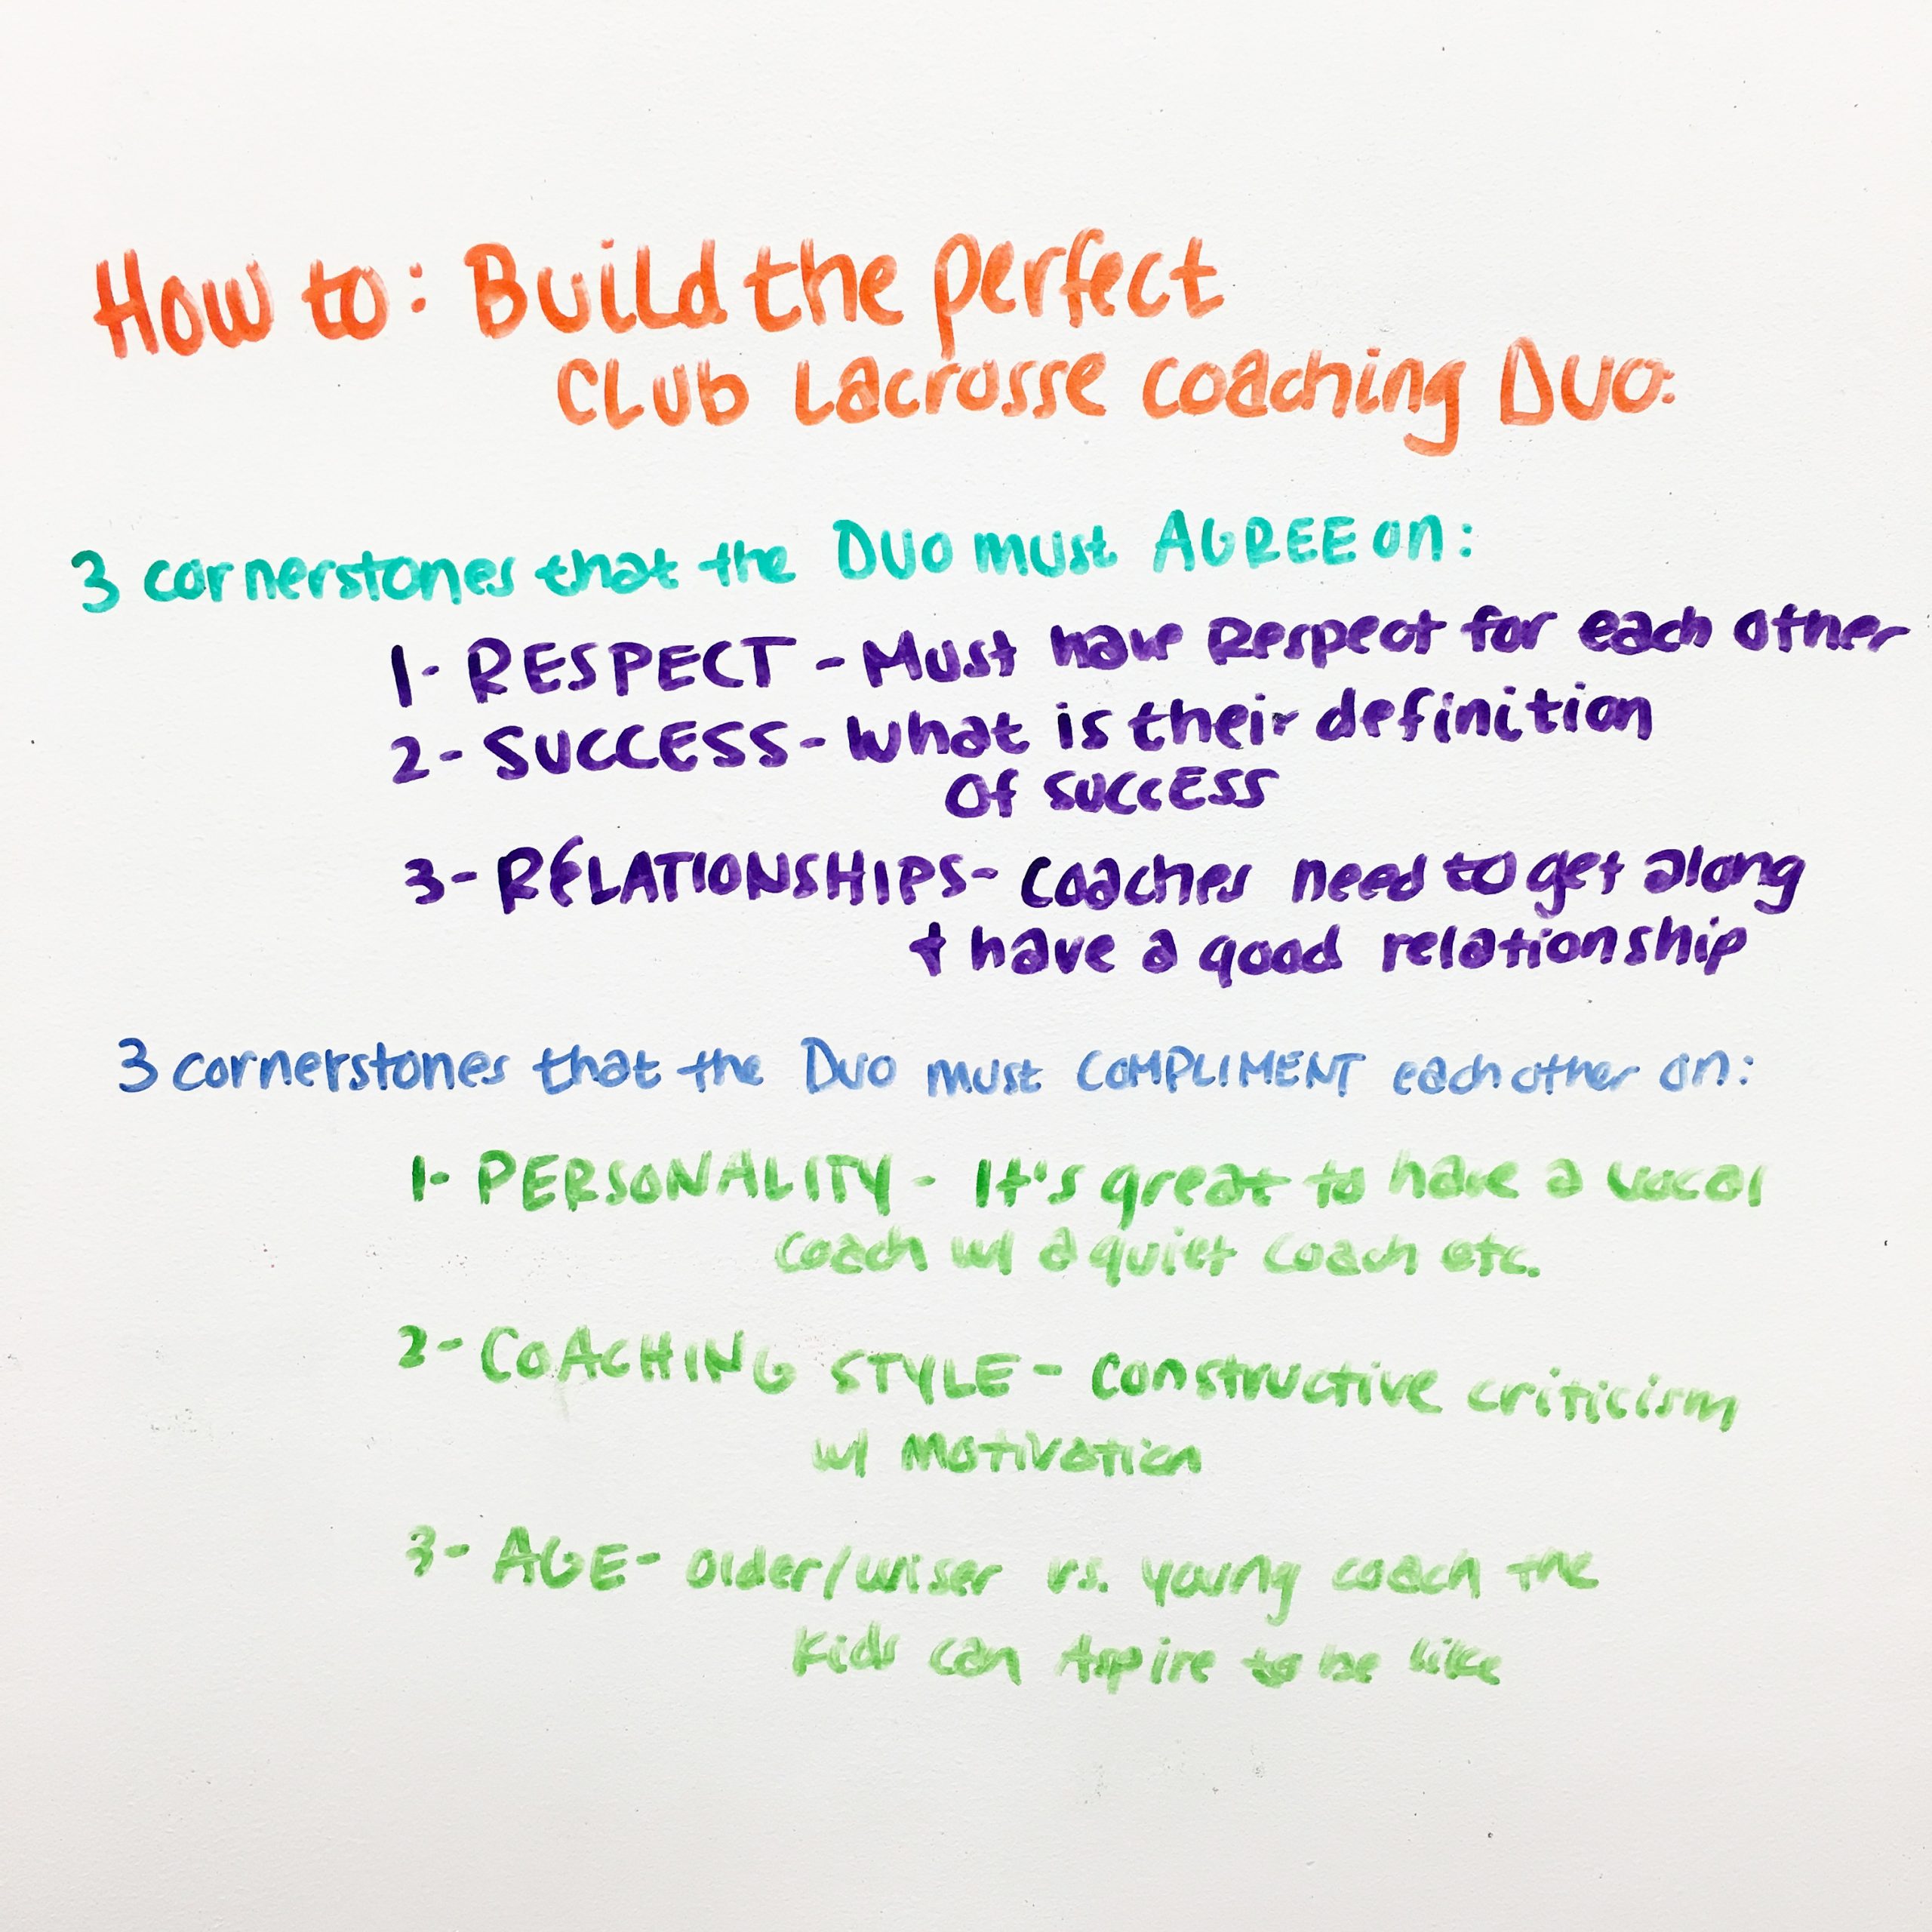 How to: Build the perfect
CLUB Lacrosse coaching Duo:
3 cornerstones that the Duo must AGREE on:
1- RESPECT - Must have Respect for each other
2- SUCCESS - What is their definition
of success
3- RELATIONSHIPS - Coaches need to get along
+ have a good relationship
3 cornerstones that the Duo must COMPLIMENT each other on:
1- PERSONALITY - It's great to have a vocal
coach w/ a quiet coach etc.
2- COACHING STYLE - Constructive criticism
w/ Motivation
3- AGE - older/wiser vs. young coach the
kids can Aspire to be like